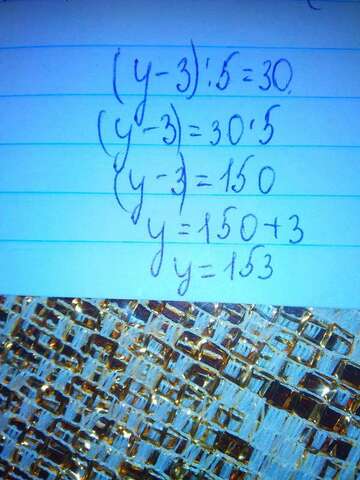 (y-3):5=30
(y-3)=30·5
(y-3)=150
y=150+3
y=153